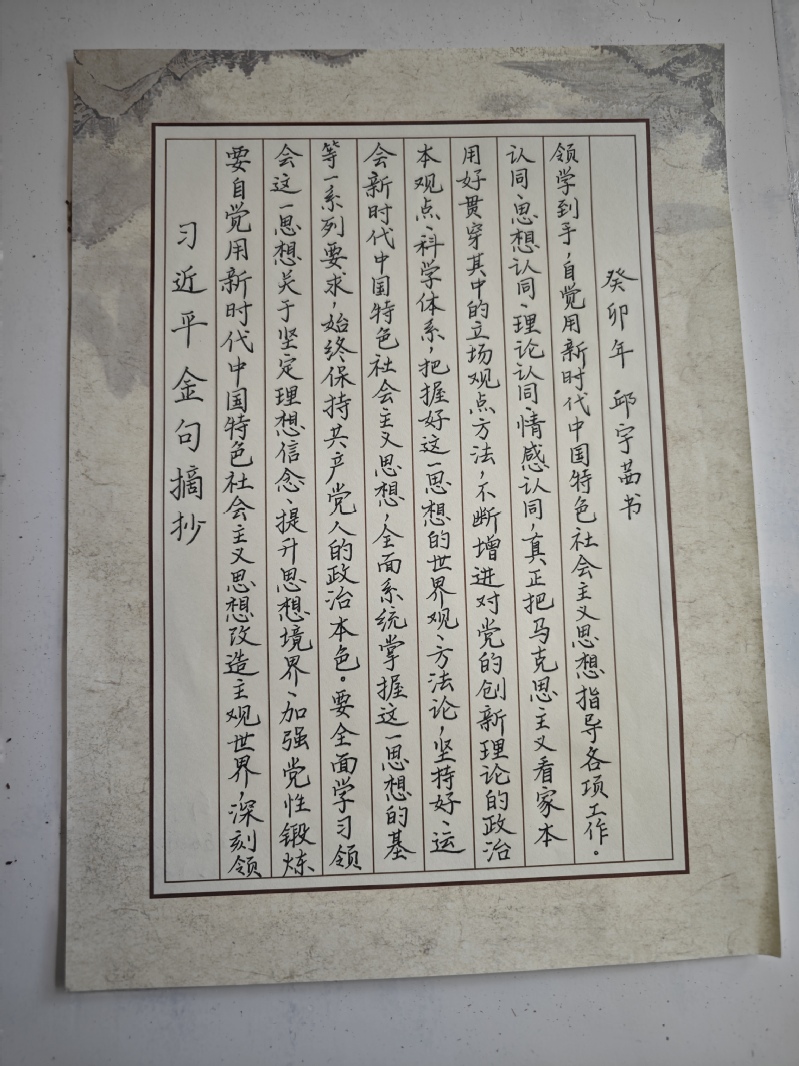 习近平金句摘抄
要自觉用新时代中国特色社会主义思想改造主观世界，深刻领
会这一思想关于坚定理想信念、提升思想境界、加强党性锻炼
等一系列要求，始终保持共产党人的政治本色。要全面学习领
会新时代中国特色社会主义思想，全面系统掌握这一思想的基
本观点、科学体系，把握好这一思想的世界观、方法论，坚持好、运
用好贯穿其中的立场观点方法，不断增进对党的创新理论的政治
认同、思想认同、理论认同、情感认同，真正把马克思主义看家本
领学到手，自觉用新时代中国特色社会主义思想指导各项工作。
癸卯年 邱宇茜书